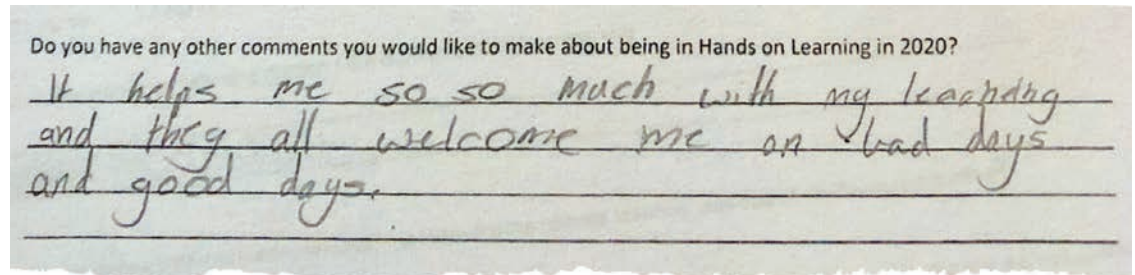 Do you have any other comments you would like to make about being in Hands on Learning in 2020?
It helps me so so much with my learning
and they all welcome me on bad days
and good days.